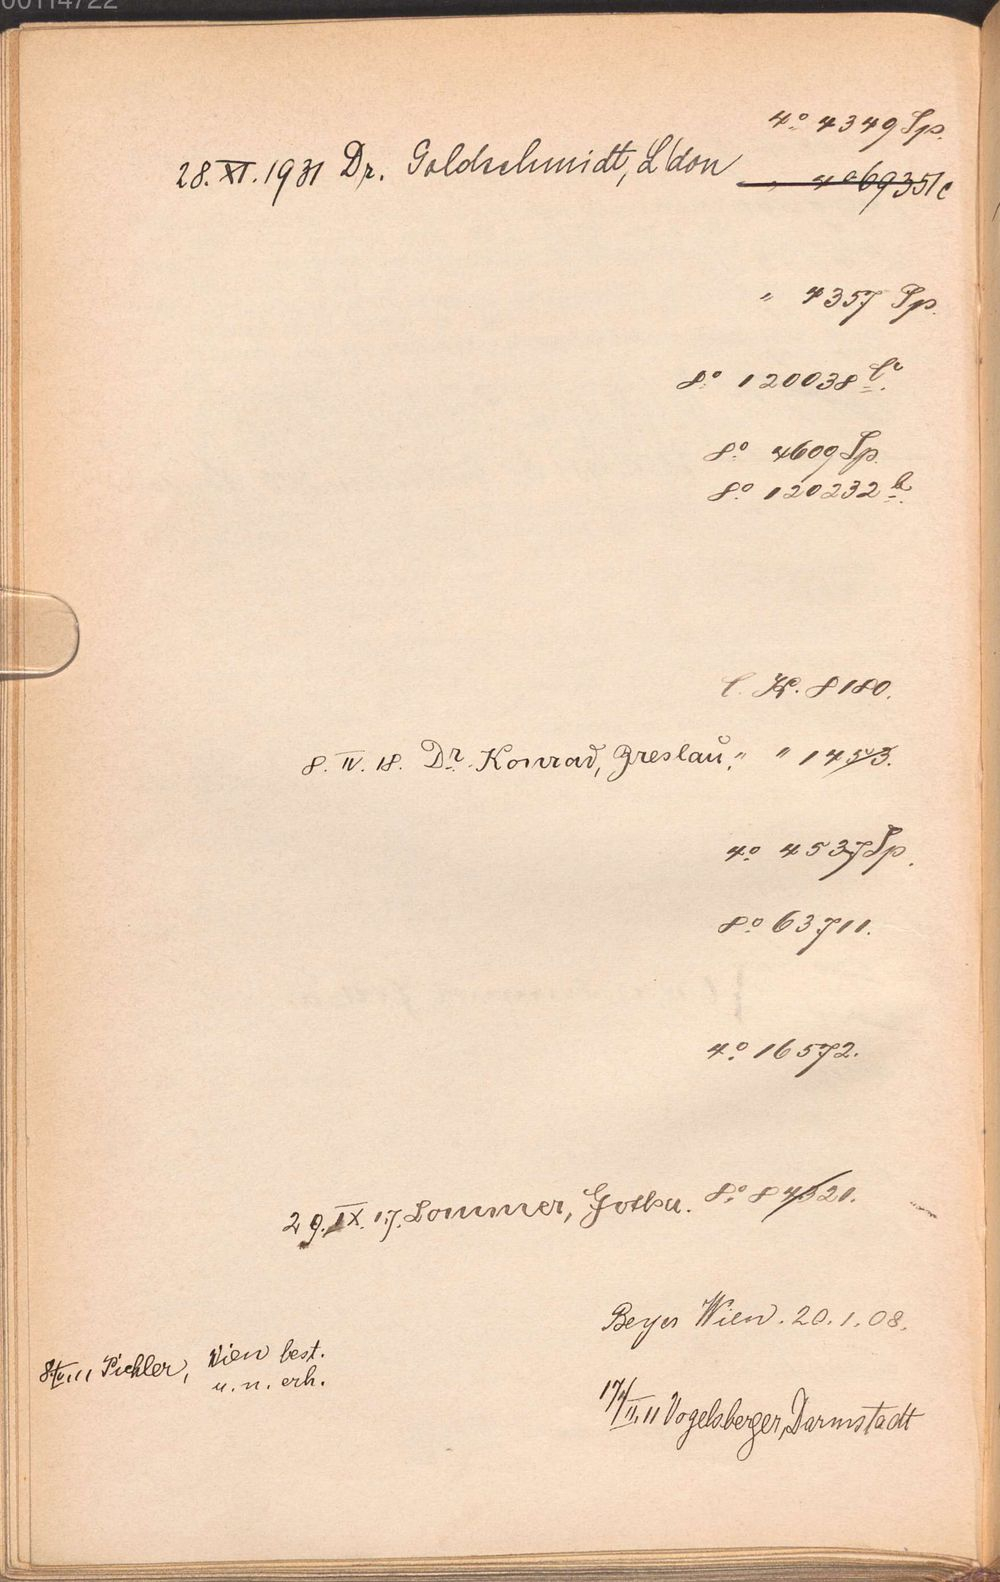 00114722
4° 4349 Sp.
28. XI. 1931 Dr. Goldschmidt, L'don " 4° 6935/c
" 4357 Sp.
8° 120038 c.
8° 4609 Sp.
8° 120232 b.
l. K. 8180.
8. IV. 18. Dr. Konrad, Breslau, " " 1453.
4° 4537 Sp.
8° 63711.
4° 16572.
29. IX. 17. Lommer, Gotha. 8° 84521.
Beyer Wien. 20. 1. 08.
8/IV.11 Pichler, Wien best.
u. n. erh.
17/II.11 Vogelsberger, Darmstadt